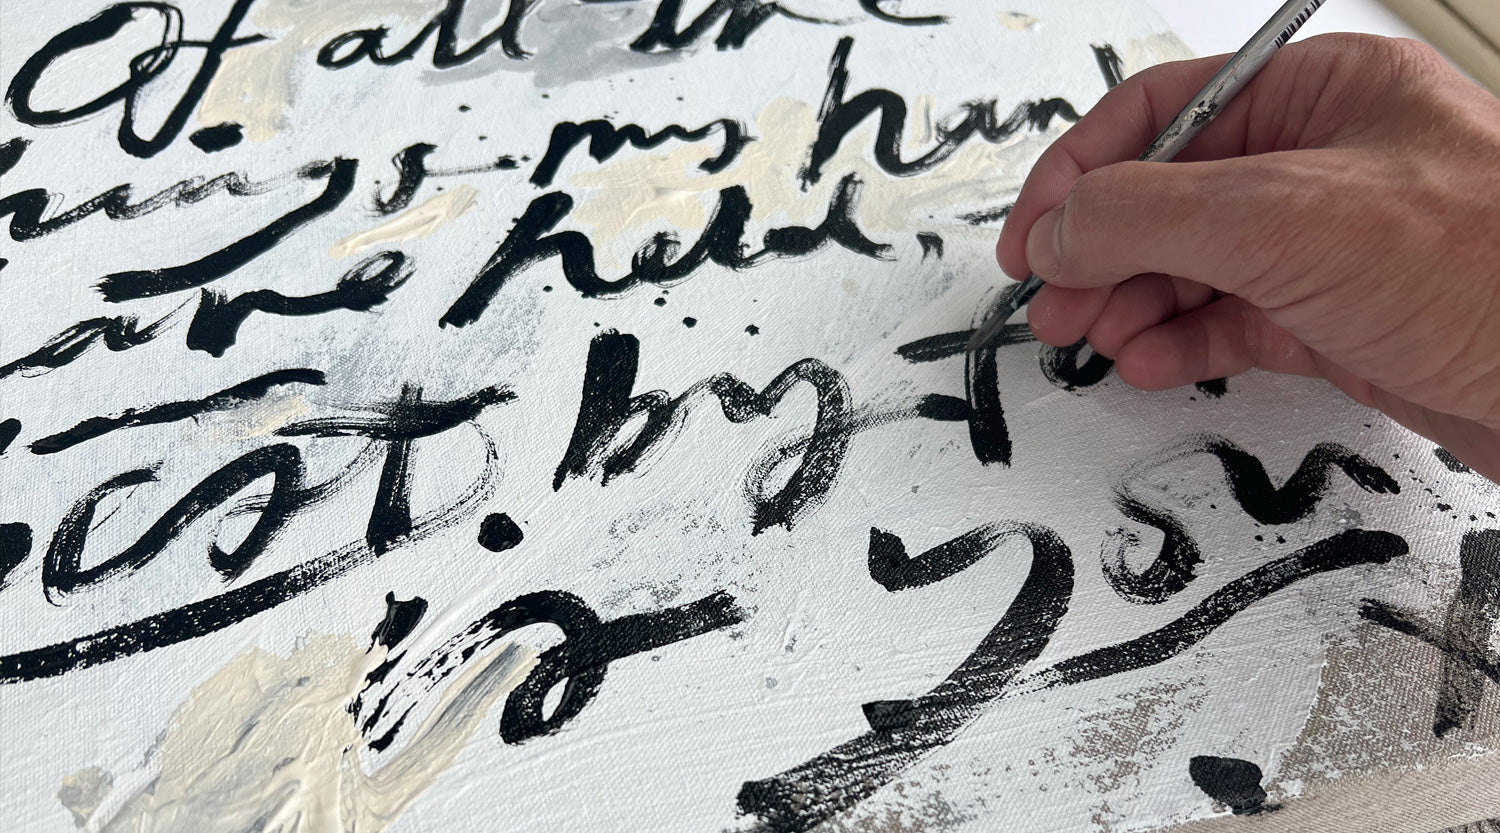 Of all the
things my hand
have held,
best by far
is you